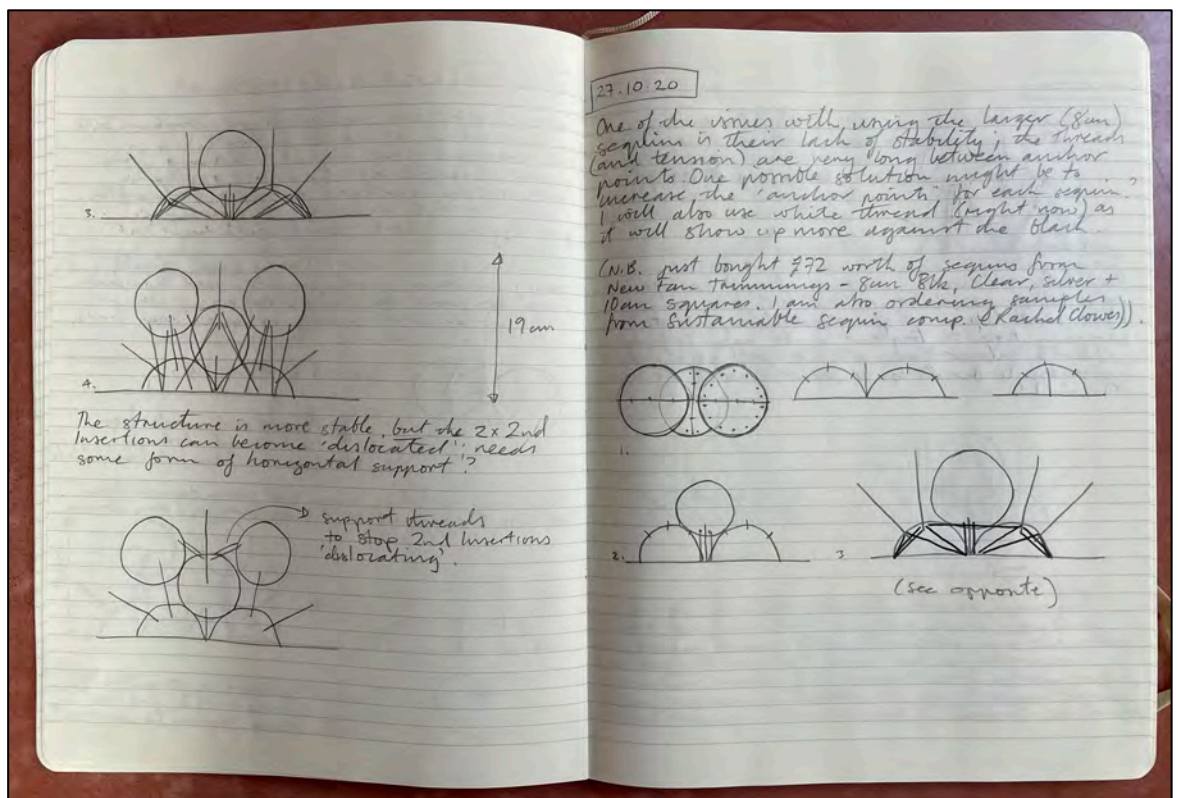 3.
4.
19cm
The structure is more stable, but the 2x 2nd
Insertions can become 'dislocated': needs
some form of horizontal support?
support threads
to stop 2nd Insertions
'dislocating'.
27.10.20
One of the issues with using the larger (8cm)
sequins is their lack of stability; the threads
(and tension) are very long between anchor
points. One possible solution might be to
increase the 'anchor points' for each sequin?
I will also use white thread (right now) as
it will show up more against the black.
(N.B. just bought £72 worth of sequins from
New Trimmings - 8cm Blk, Clear, silver +
10cm squares. I am also ordering samples
from Sustainable sequin comp. (Rachel Clowes)).
1.
2.
3.
(see opposite)